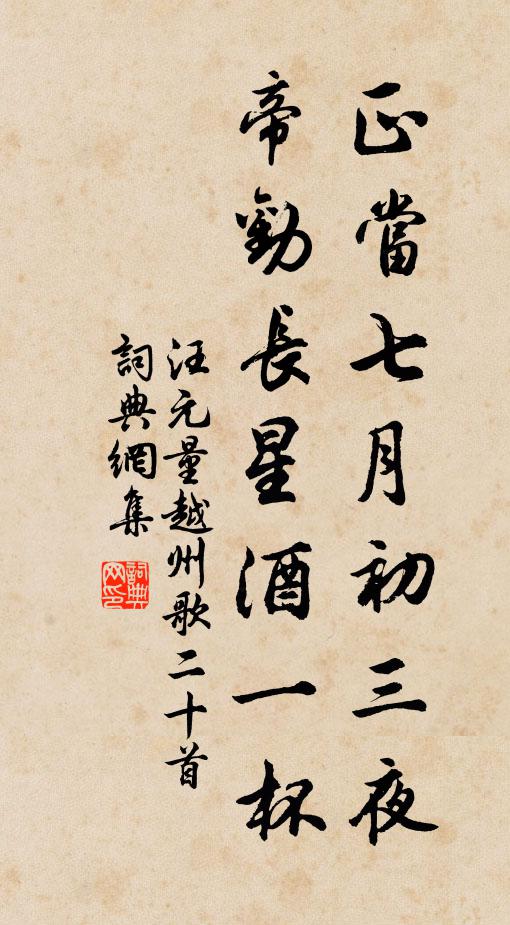 正當七月初三夜
帝勸長星酒一杯
汪元量越州歌二十首
詞典網集
詞典网印